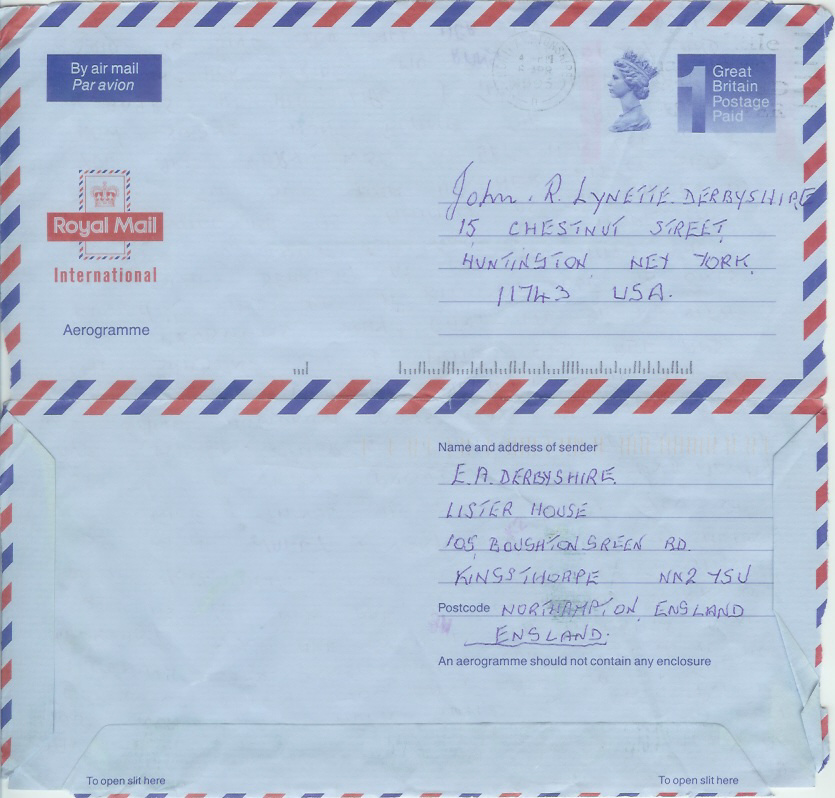 By air mail
Par avion
1 Great
Britain
Postage
Paid
Royal Mail
International
Aerogramme
John. R. LYNETTE. DERBYSHIRE
15 CHESTNUT STREET,
HUNTINGTON NEY YORK.
11743 USA.
Name and address of sender
E.A. DERBYSHIRE.
LISTER HOUSE
105, BOUGHTON GREEN RD.
KINGSTHORPE NN2 7SU
Postcode NORTHAMPTON, ENGLAND
ENGLAND.
An aerogramme should not contain any enclosure
To open slit here
To open slit here